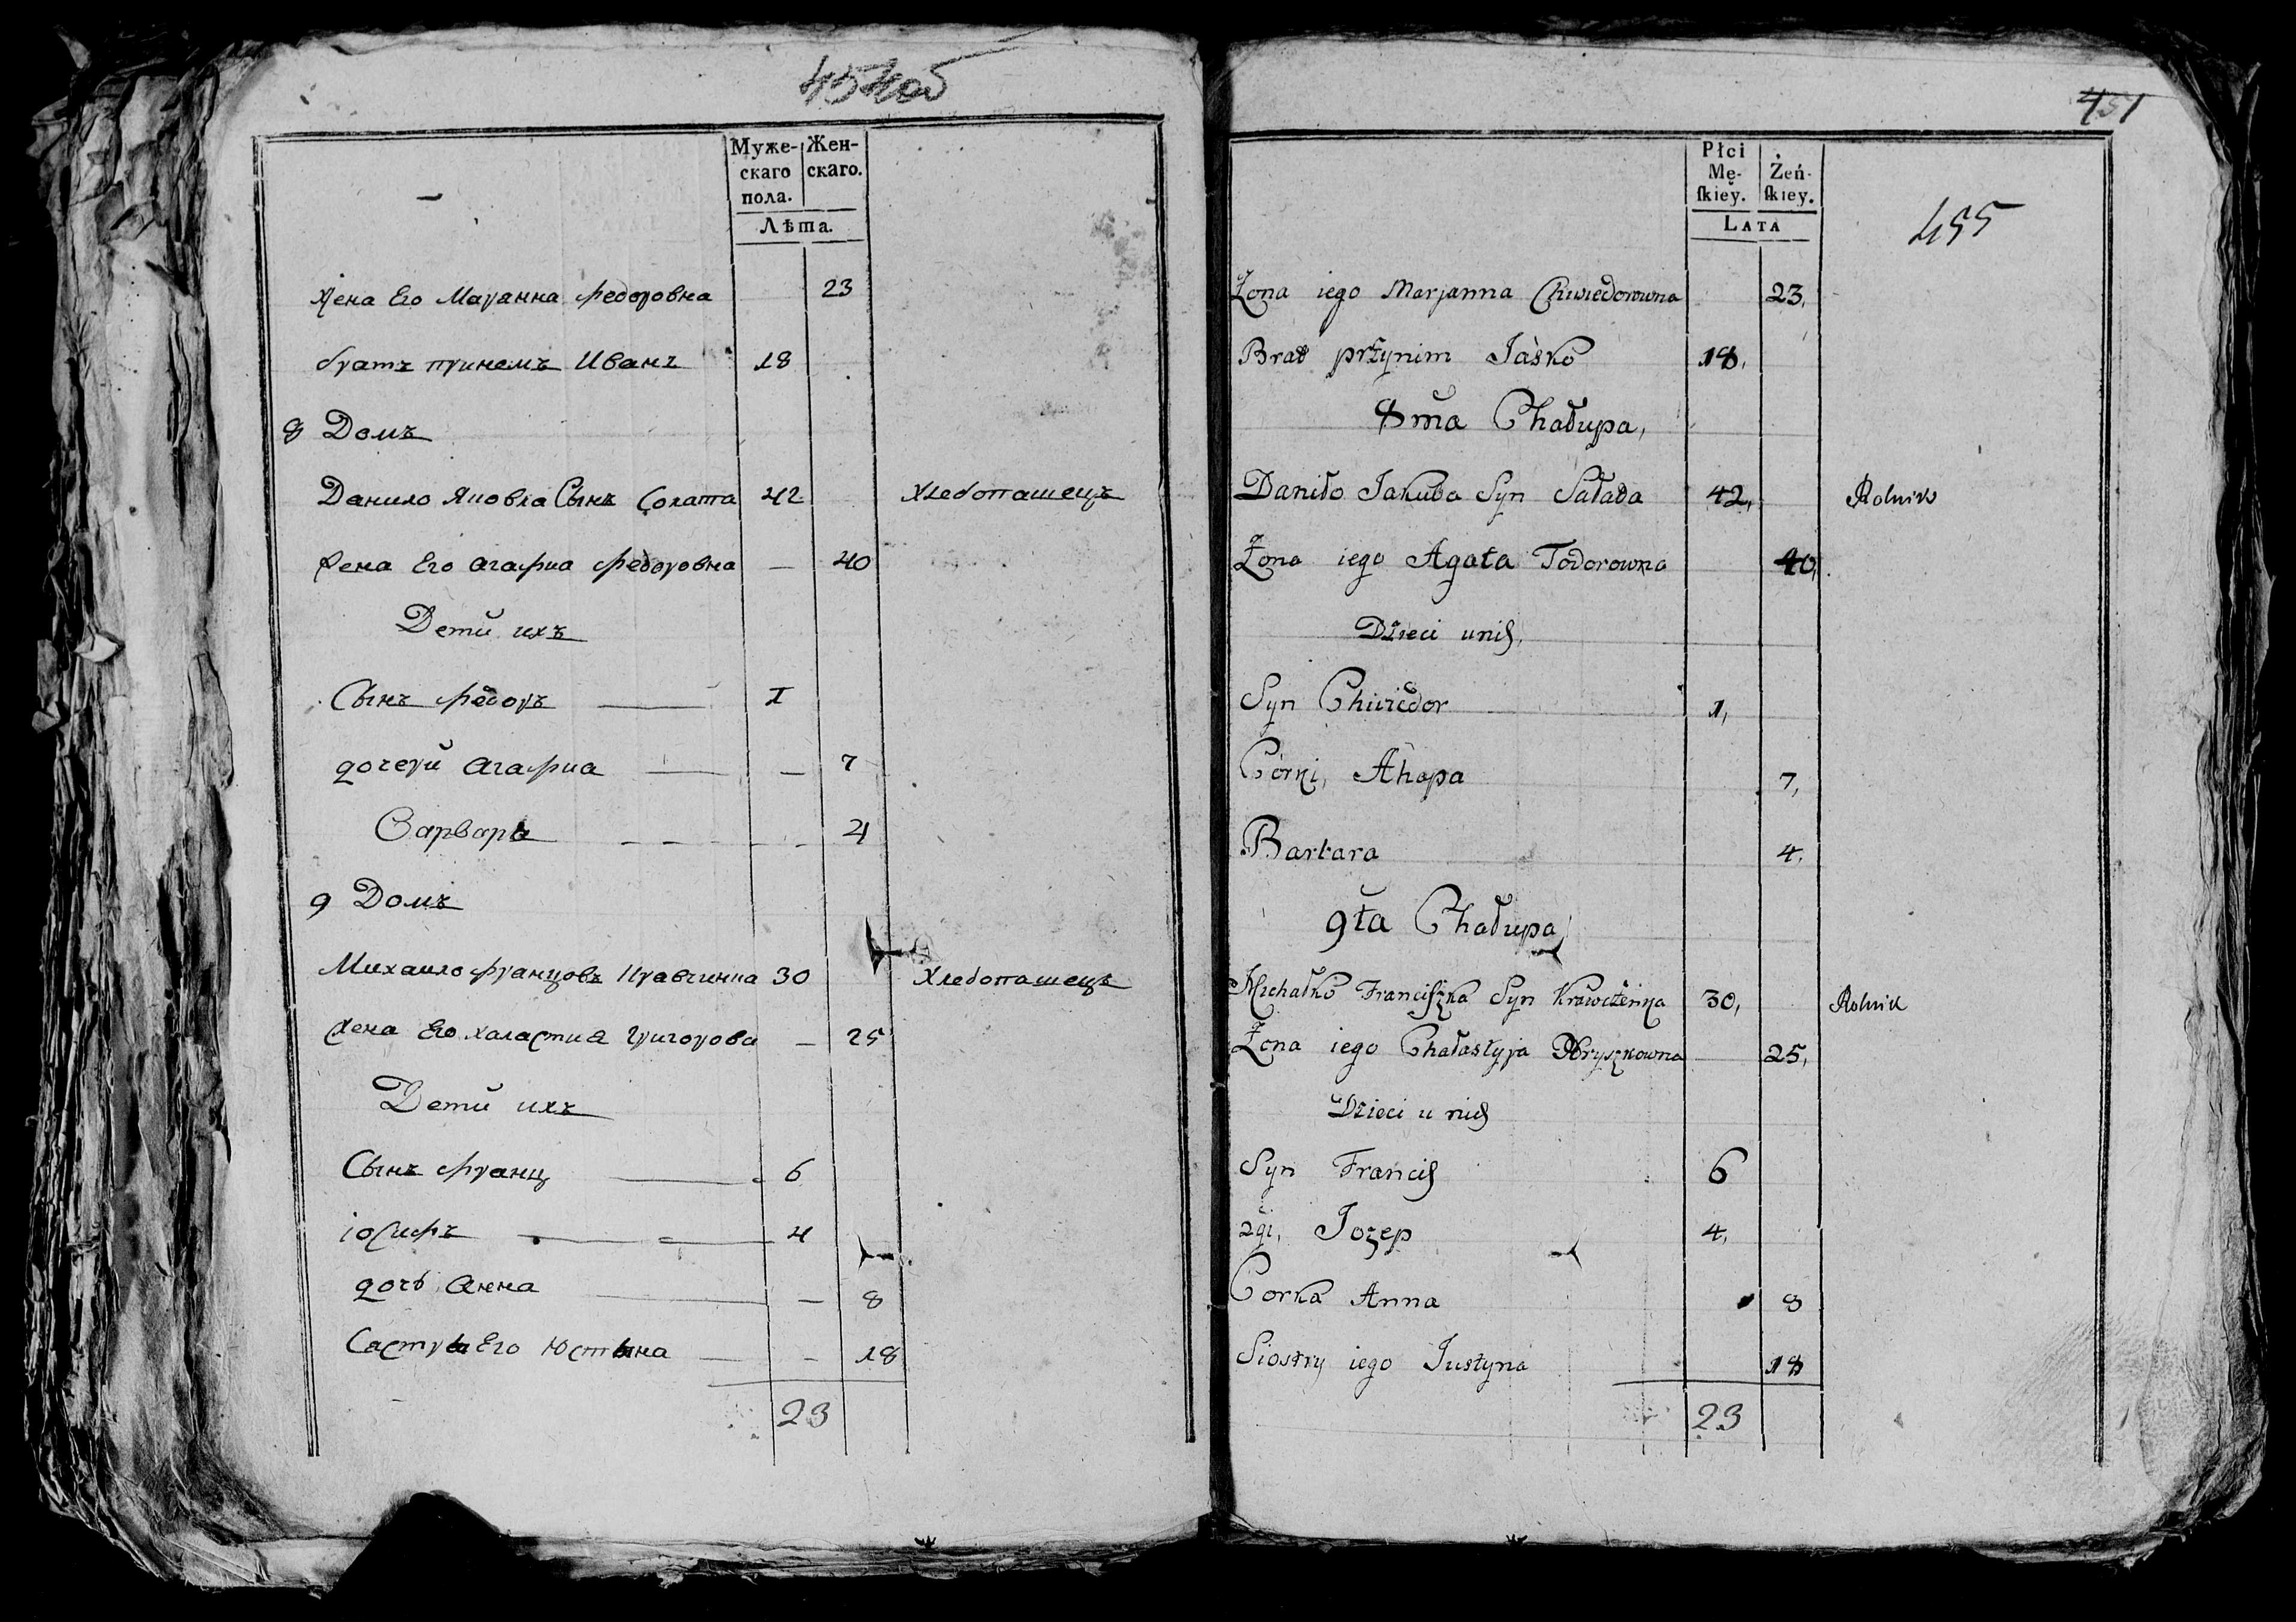 454об
Муже- Жен-
скаго скаго.
пола.
Лѣта.
жена Его Марянна Федоровна 23
братъ принемъ Иванъ 18
8 Домъ
Данило Яковла Сынъ Солата 42 Хлебопашецъ
жена Его Агафиа Федоровна — 40
Дети ихъ
Сынъ Федоръ — 1
дочери Агафиа — — 7
Варвара 4
9 Домъ
Михаило Францовъ Кравчинка 30 Хлебопашецъ
жена Его Халастиа Григорова — 25
Дети ихъ
Сынъ Франц — 6
іосифъ — 4
дочь Анна — — 8
Састра Его Юстына — — 18
23
451
Płci
Mę- Żeń-
skiey. skiey.
LATA
455
Żona iego Marjanna Chwiedorowna 23,
Brat przynim Jaśko 18,
8ma Chałupa,
Daniło Jakuba Syn Sałata 42, Rolnik
Żona iego Agata Todorowna 40,
Dzieci unich,
Syn Chwiedor 1,
Córki, Ahapa 7,
Barbara 4,
9ta Chałupa,
Michałko Franciszka Syn Krawczenia 30, Rolnik
Żona iego Chałastyja Hryszkowna 25,
Dzieci u nich
Syn Francis 6
2gi, Jozep 4,
Corka Anna 8
Siostry iego Justyna 18
23